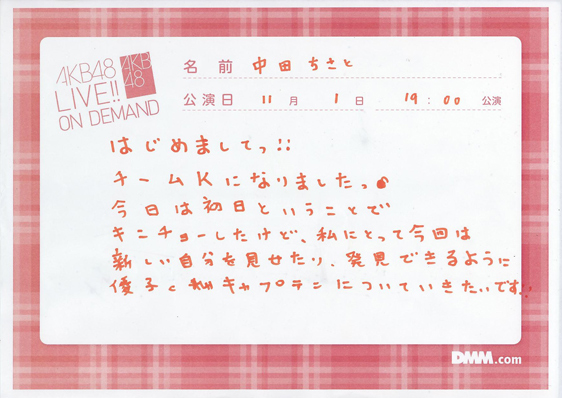 AKB48
LIVE!!
ON DEMAND
AKB
48
名前 中田ちさと
公演日 11月 1日 19:00 公演
はじめましてっ!!
チームKになりましたっ
今日は初日ということで
キンチョーしたけど、私にとって今回は
新しい自分を見せたり、発見できるように
優子 キャプテンについていきたいです!!
DMM.com